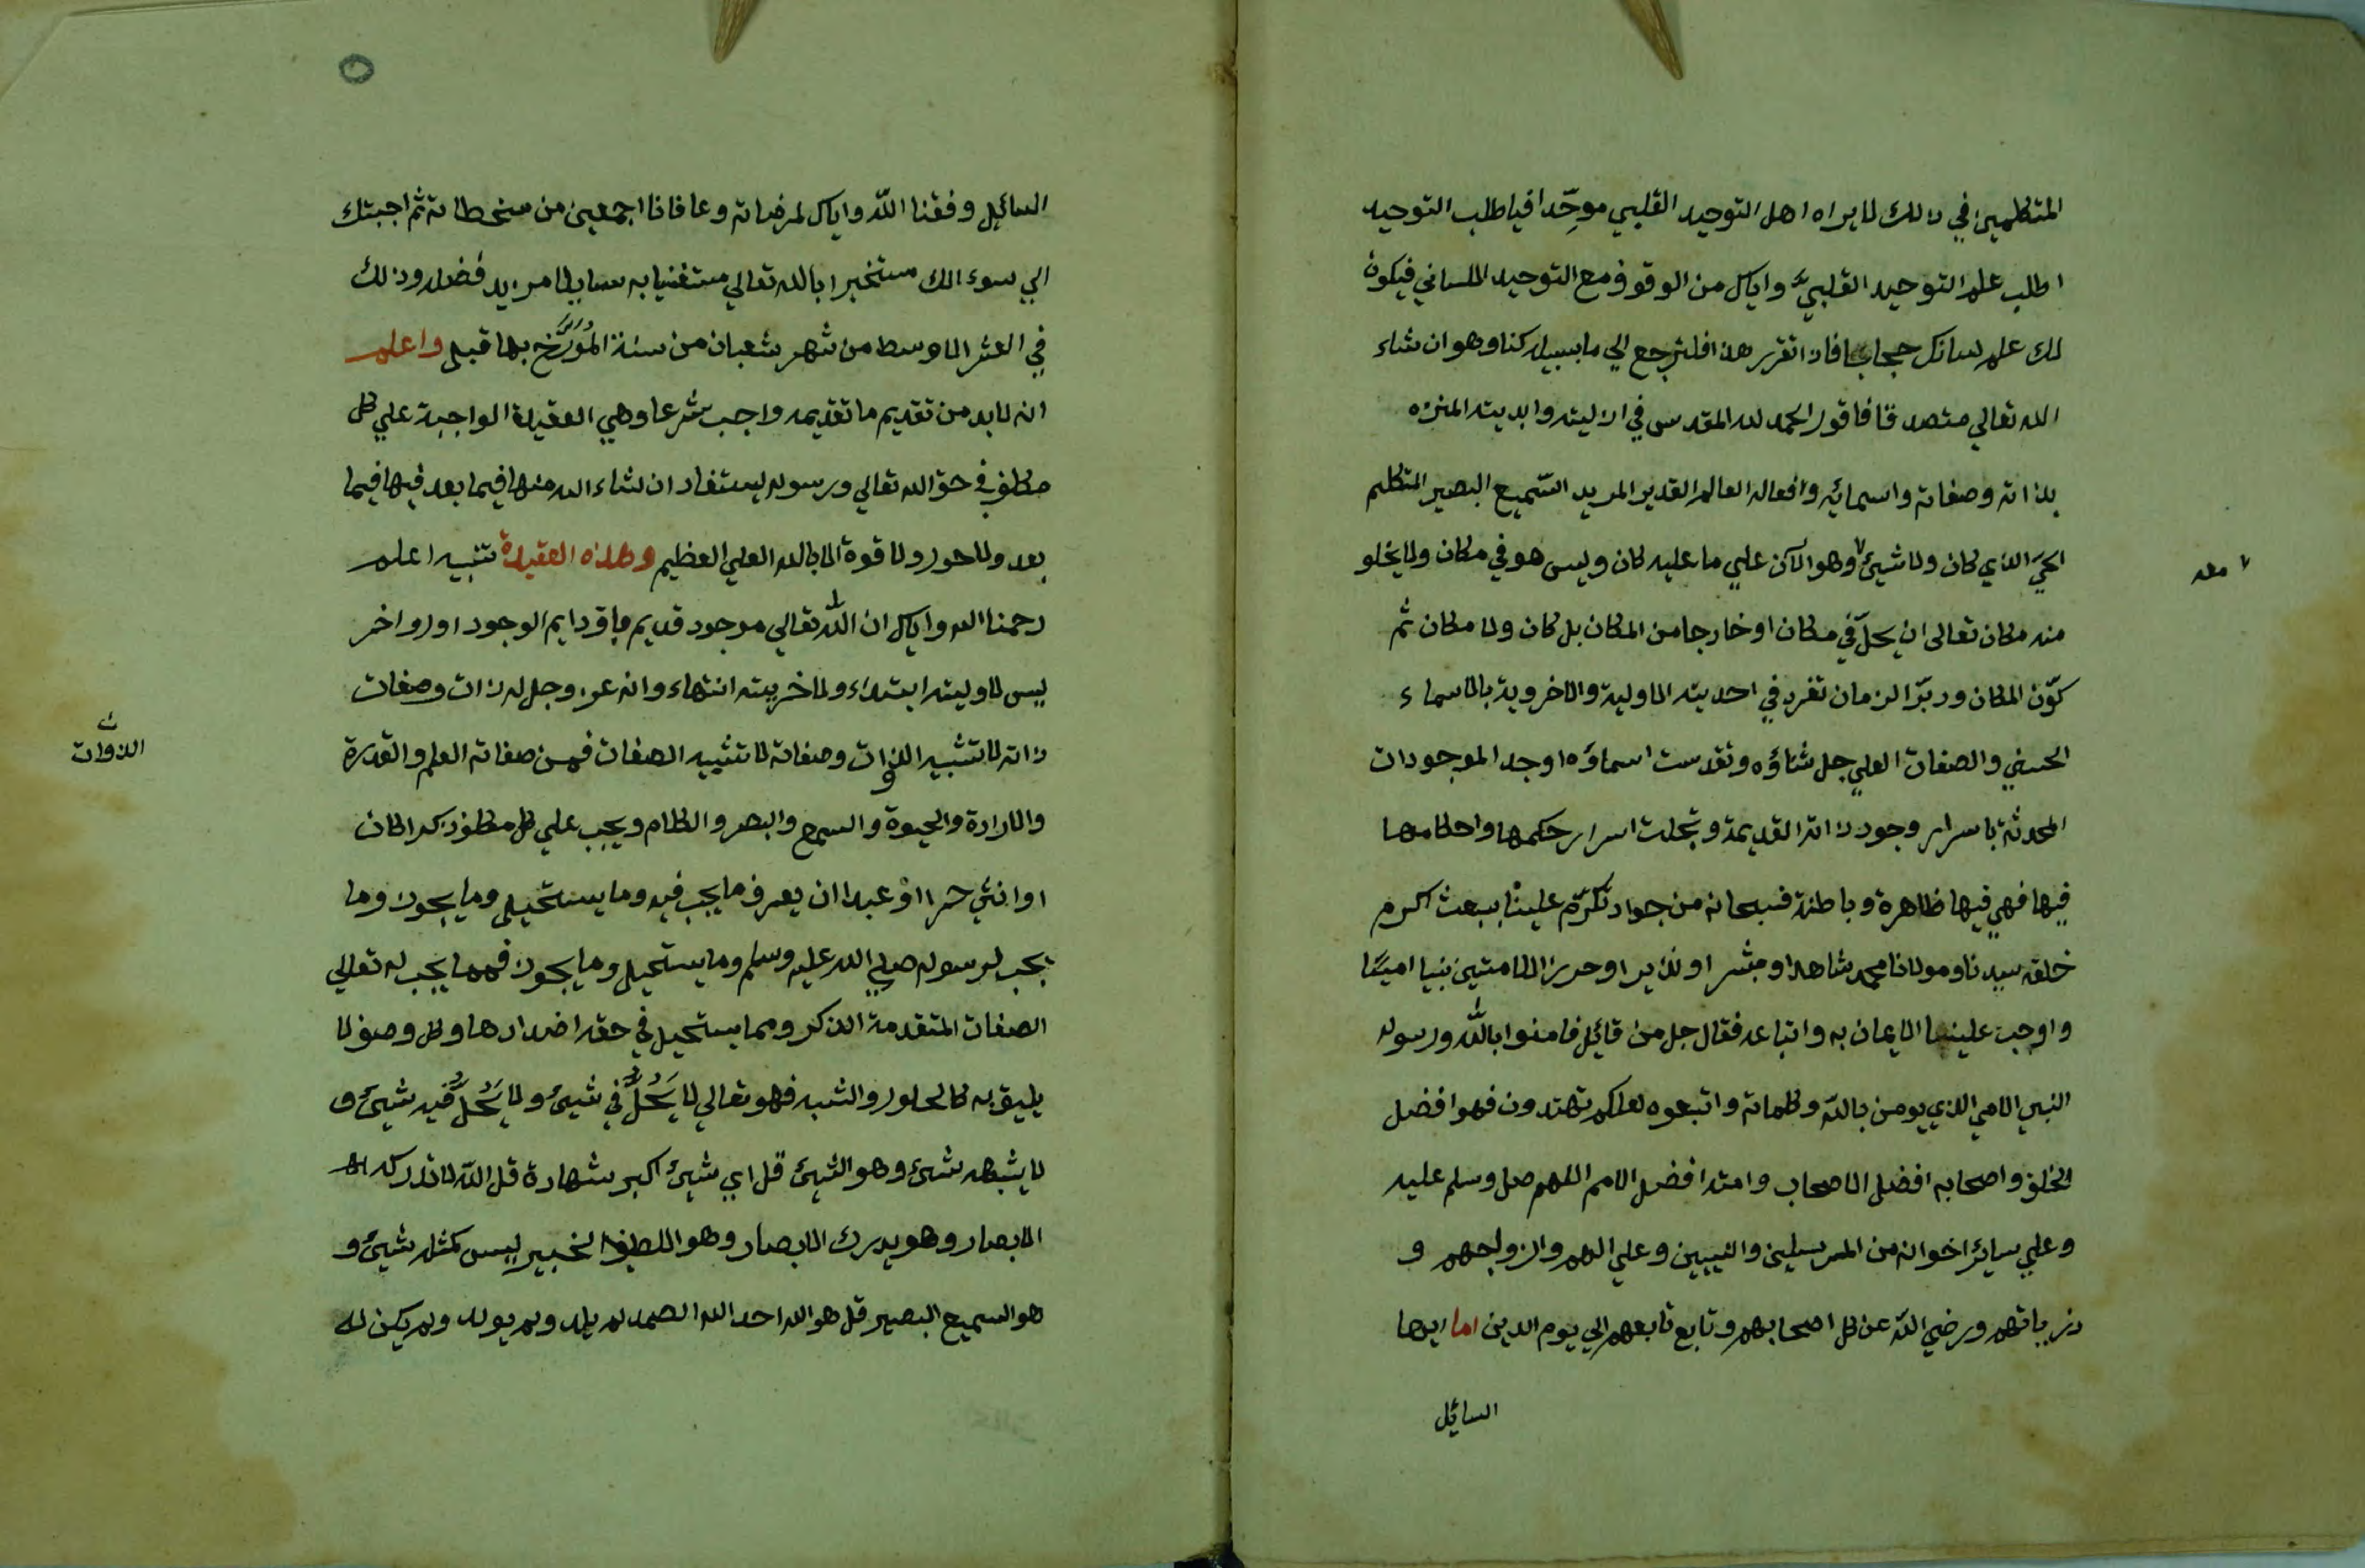 المتكلمين في ذالك لا يراه اهل التوحيد القلبي موحِّدا فيا طلب التوحيد
اطلب علم التوحيد القلبيّ واياك من الوقوف مع التوحيد اللساني فيكون
لك علم لسانك حجابا فاذا تقرر هذا فلنرجع الي ما بسبيله كنا وهو ان شاء
الله تعالي متصدقا فاقول الحمد لله المقدس في ازليته وابديته المنزه
بذاته وصفاته واسمائه وافعاله العالم القدير المريد السّميع البصير المتكلم
الحيّ الذي كان ولا شيئ٧ وهو الآن علي ما عليه كان وليس هو في مكان ولا يخلو
٧ معه
منه مكان تعالى ان يحلّ في مكان او خارجا من المكان بل كان ولا مكان ثم
كوّن المكان ودبّر الزمان تفرد في احديته الاولية والاخروية بالاسماء
الحسني والصفات العلي جل ثناؤه وتقدست اسماؤه اوجد الموجودات
المحدثة باسرار وجود ذاته القديمة وتجلت اسرار حكمها واحكامها
فيها فهي فيها ظاهرة وباطنة فسبحانه من جواد تكرّم علينا ببعث اكرم
خلقه سيدنا ومولانا محمد شاهدا ومبشرا ونذيرا وحرزا للاميين نبيا امينًا
واوجب علينا الايمان به واتباعه فقال جل من قائل فامنوا بالله ورسوله
النبي الامي الذي يومن بالله وكلماته واتبعوه لعلكم تهتدون فهو افضل
الخلق واصحابه افضل الاصحاب وامته افضل الامم اللهم صل وسلم عليه
وعلي سائر اخوانه من المرسلين والنبيين وعلي الهم وازواجهم و
ذرياتهم ورضي الله عن كل اصحابهم وتابع تابعهم الي يوم الدين اما ايها
السائل
السائل وفقنا الله واياك لمرضاته وعافانا اجمعين من سخطاته ثم اجبتك
الي سوءالك مستخيرا بالله تعالي مستغنيا به سايلا مزيد فضله وذلك
في العشر الاوسط من شهر شعبان من سنة المُوَرَّخ بها قبل واعلم
انه لابد من تقديم ما تقديمه واجب شرعا وهي العقيدة الواجبة علي كل
مكلف في حق الله تعالي ورسوله ليستفاد ان شاء الله منها فيما بعد فيها فيما
بعد ولا حول ولا قوة الا بالله العلي العظيم وهذه العقيدة تنبيه اعلم
رحمنا الله واياك ان الله تعالي موجود قديم باق دايم الوجود اول واخر
ليس لاوليته ابتداء ولا خريته انتهاء وانه عز وجل له ذات وصفات
ذاته لا تشبيه الذوات وصفاته لا تشبيه الصفات فمن صفاته العلم والقدرة
ن
الذوات
والارادة والحيوة والسمع والبصر والكلام ويجب علي كل مكلف ذكرا كان
او انثي حرا اوْ عبدا ان يعرف ما يجب فيه وما يستحيل وما يجوز وما
يجب لرسوله صلي الله عليه وسلم وما يستحيل وما يجوز فمما يجب له تعالي
الصفات المتقدمة الذكر ومما يستحيل في حقه اضدادها وكل وصف لا
يليق به كالحلول والشبه فهو تعالي لا يَحُلُّ في شيئ ولا يَحُلُّ فيه شيئ و
لا يشبهه شيئ وهو الشيئ قل اي شيئ اكبر شهادة قل الله لا تدركه
الابصار وهو يدرك الابصار وهو اللطيف الخبير ليس كمثله شيئ و
هو السميع البصير قل هو الله احد الله الصمد لم يلد ولم يولد ولم يكن له